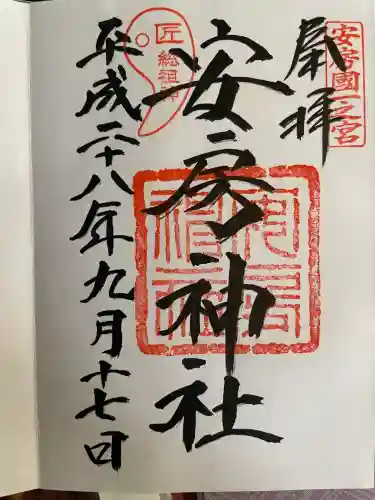 奉拝
安房國一之宮
安房神社
匠
総祖神
平成二十八年九月十七日